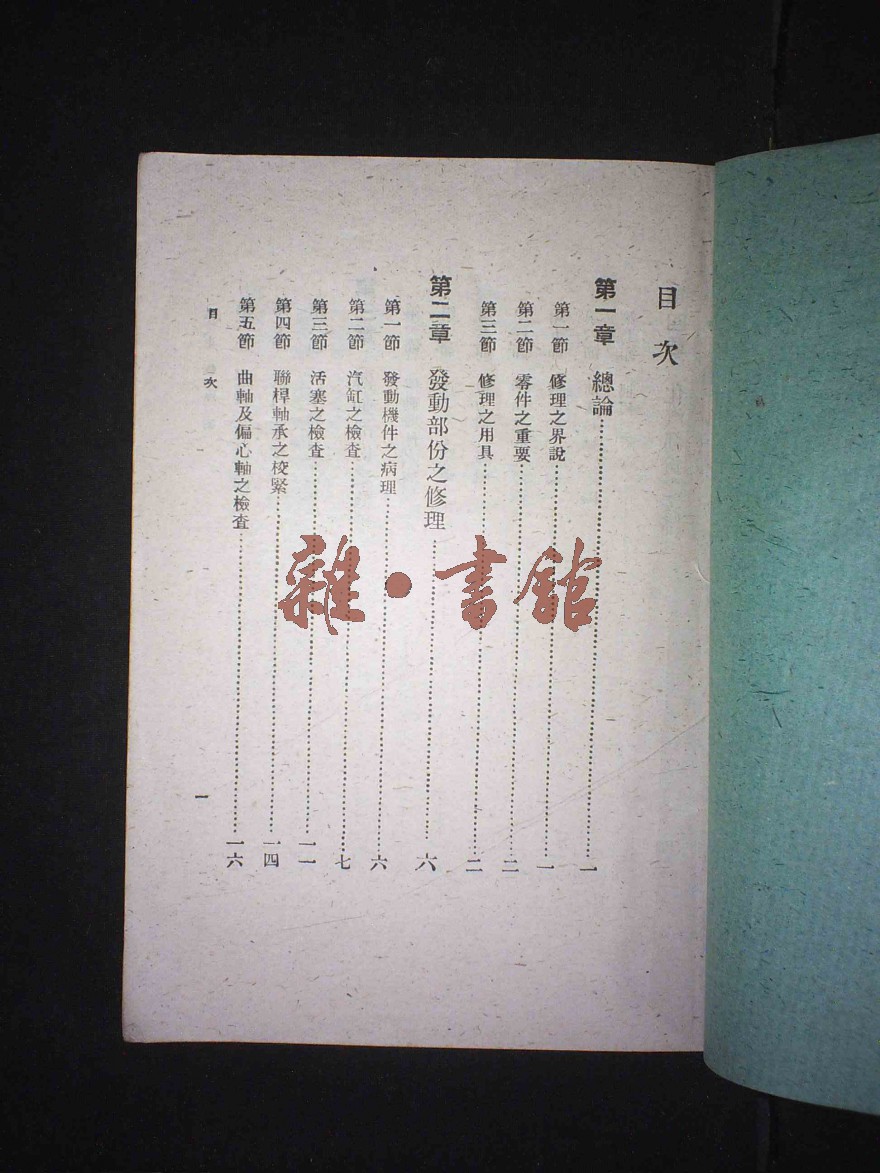 目次
第一章 總論……一
第一節 修理之界說……一
第二節 零件之重要……二
第三節 修理之用具……二
第二章 發動部份之修理……六
第一節 發動機件之病理……六
第二節 汽缸之檢查……七
第三節 活塞之檢查……一一
第四節 聯桿軸承之校緊……一四
第五節 曲軸及偏心軸之檢查……一六
目次
一
雜·書館